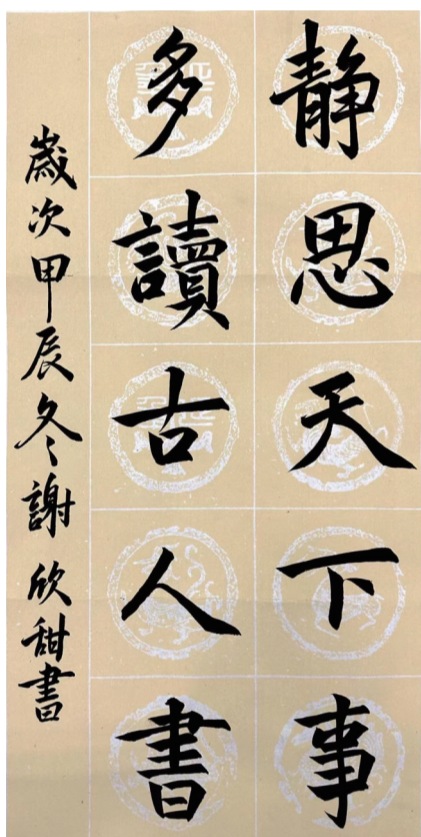 静思天下事
多讀古人書
歲次甲辰冬謝欣甜書